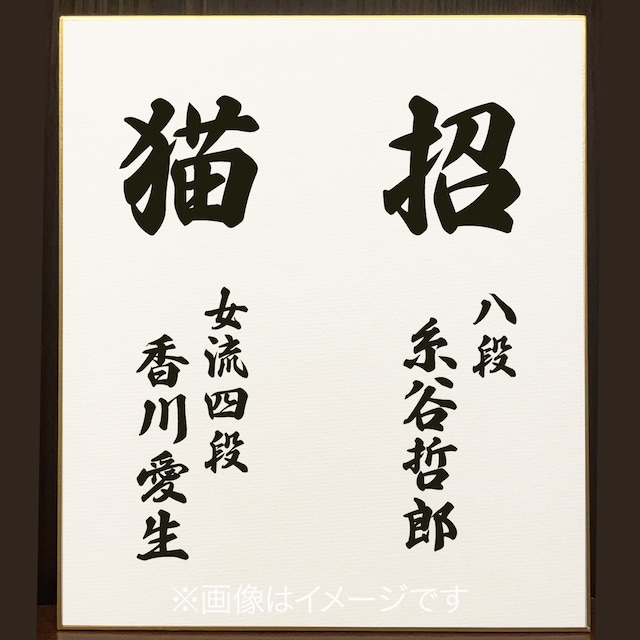 招
八段
糸谷哲郎
猫
女流四段
香川愛生
※画像はイメージです